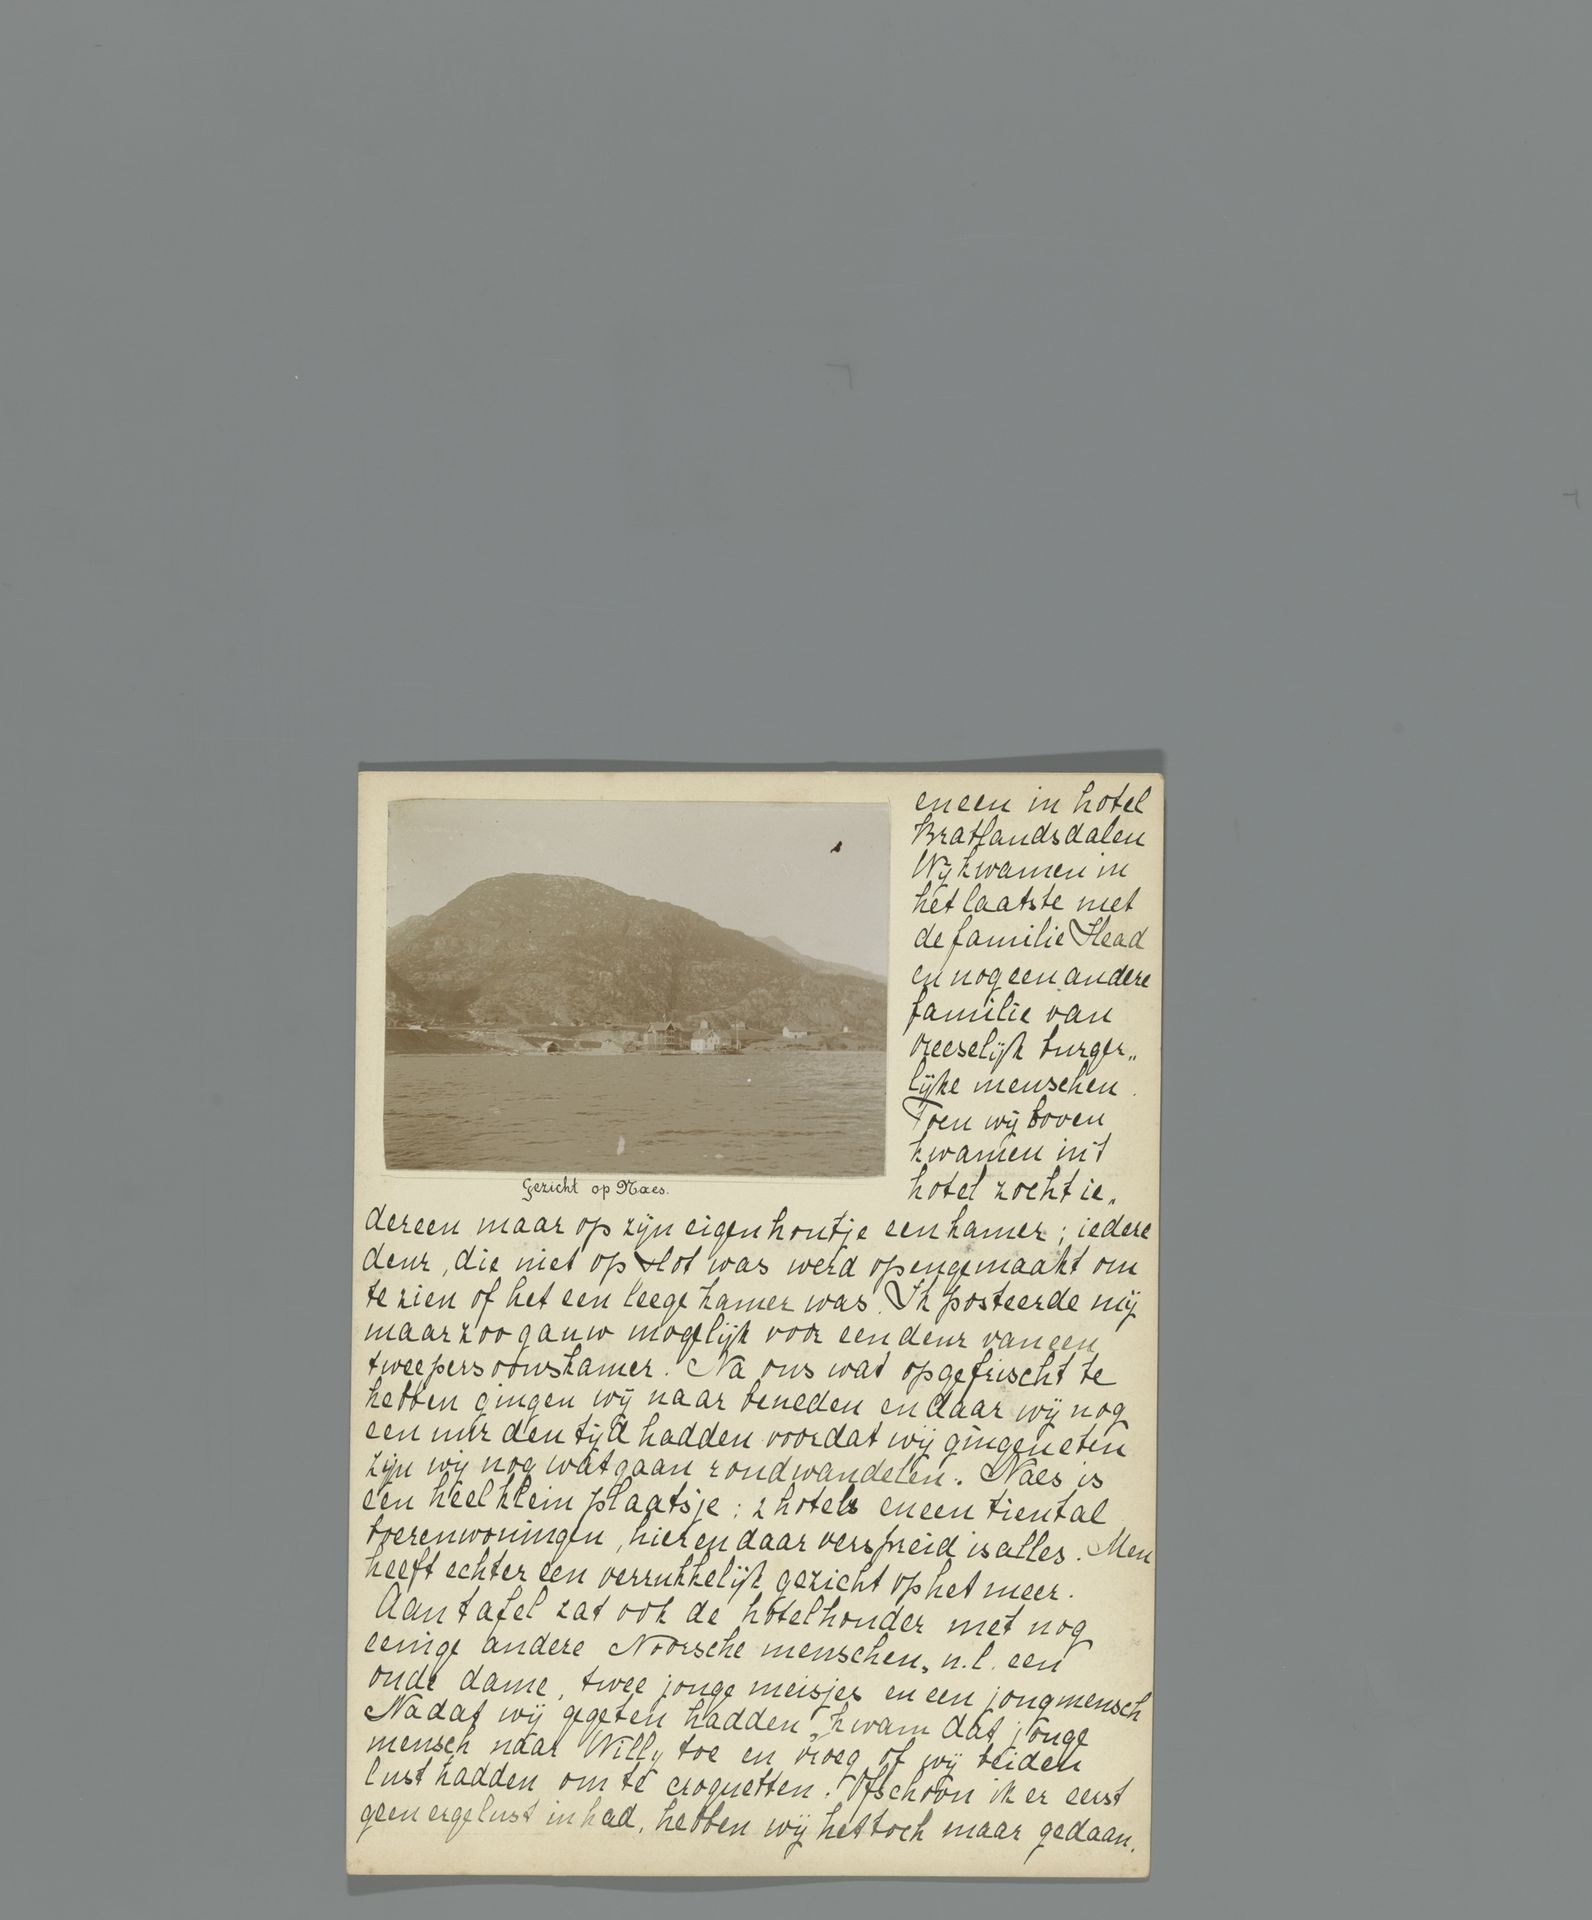 en een in hotel
Bratlandsdalen
Wij kwamen in
het laatste met
de familie Head
en nog een andere
familie van
vreeselijk burger„
lijke menschen.
Toen wij boven
kwamen in 't
hotel zocht ie„
Gezicht op Naes.
dereen maar op zijn eigen houtje een kamer; iedere
deur, die niet op slot was werd opengemaakt om
te zien of het een leege kamer was. Ik posteerde mij
maar zoo gauw mogelijk voor een deur van een
tweepersoonskamer. Na ons wat opgefrischt te
hebben gingen wij naar beneden en daar wij nog
een uur den tijd hadden voordat wij gingen eten
zijn wij nog wat gaan rondwandelen. Naes is
een heel klein plaatsje: 2 hotels en een tiental
boerenwoningen, hier en daar verspreid is alles. Men
heeft echter een verrukkelijk gezicht op het meer.
Aan tafel zat ook de hôtelhouder met nog
eenige andere Noorsche menschen, n.l. een
oude dame, twee jonge meisjes en een jongmensch
Nadat wij gegeten hadden, kwam dat jonge
mensch naar Willy toe en vroeg of wij beiden
lust hadden om te croquetten. Ofschoon ik er eerst
geen erge lust in had, hebben wij het toch maar gedaan.